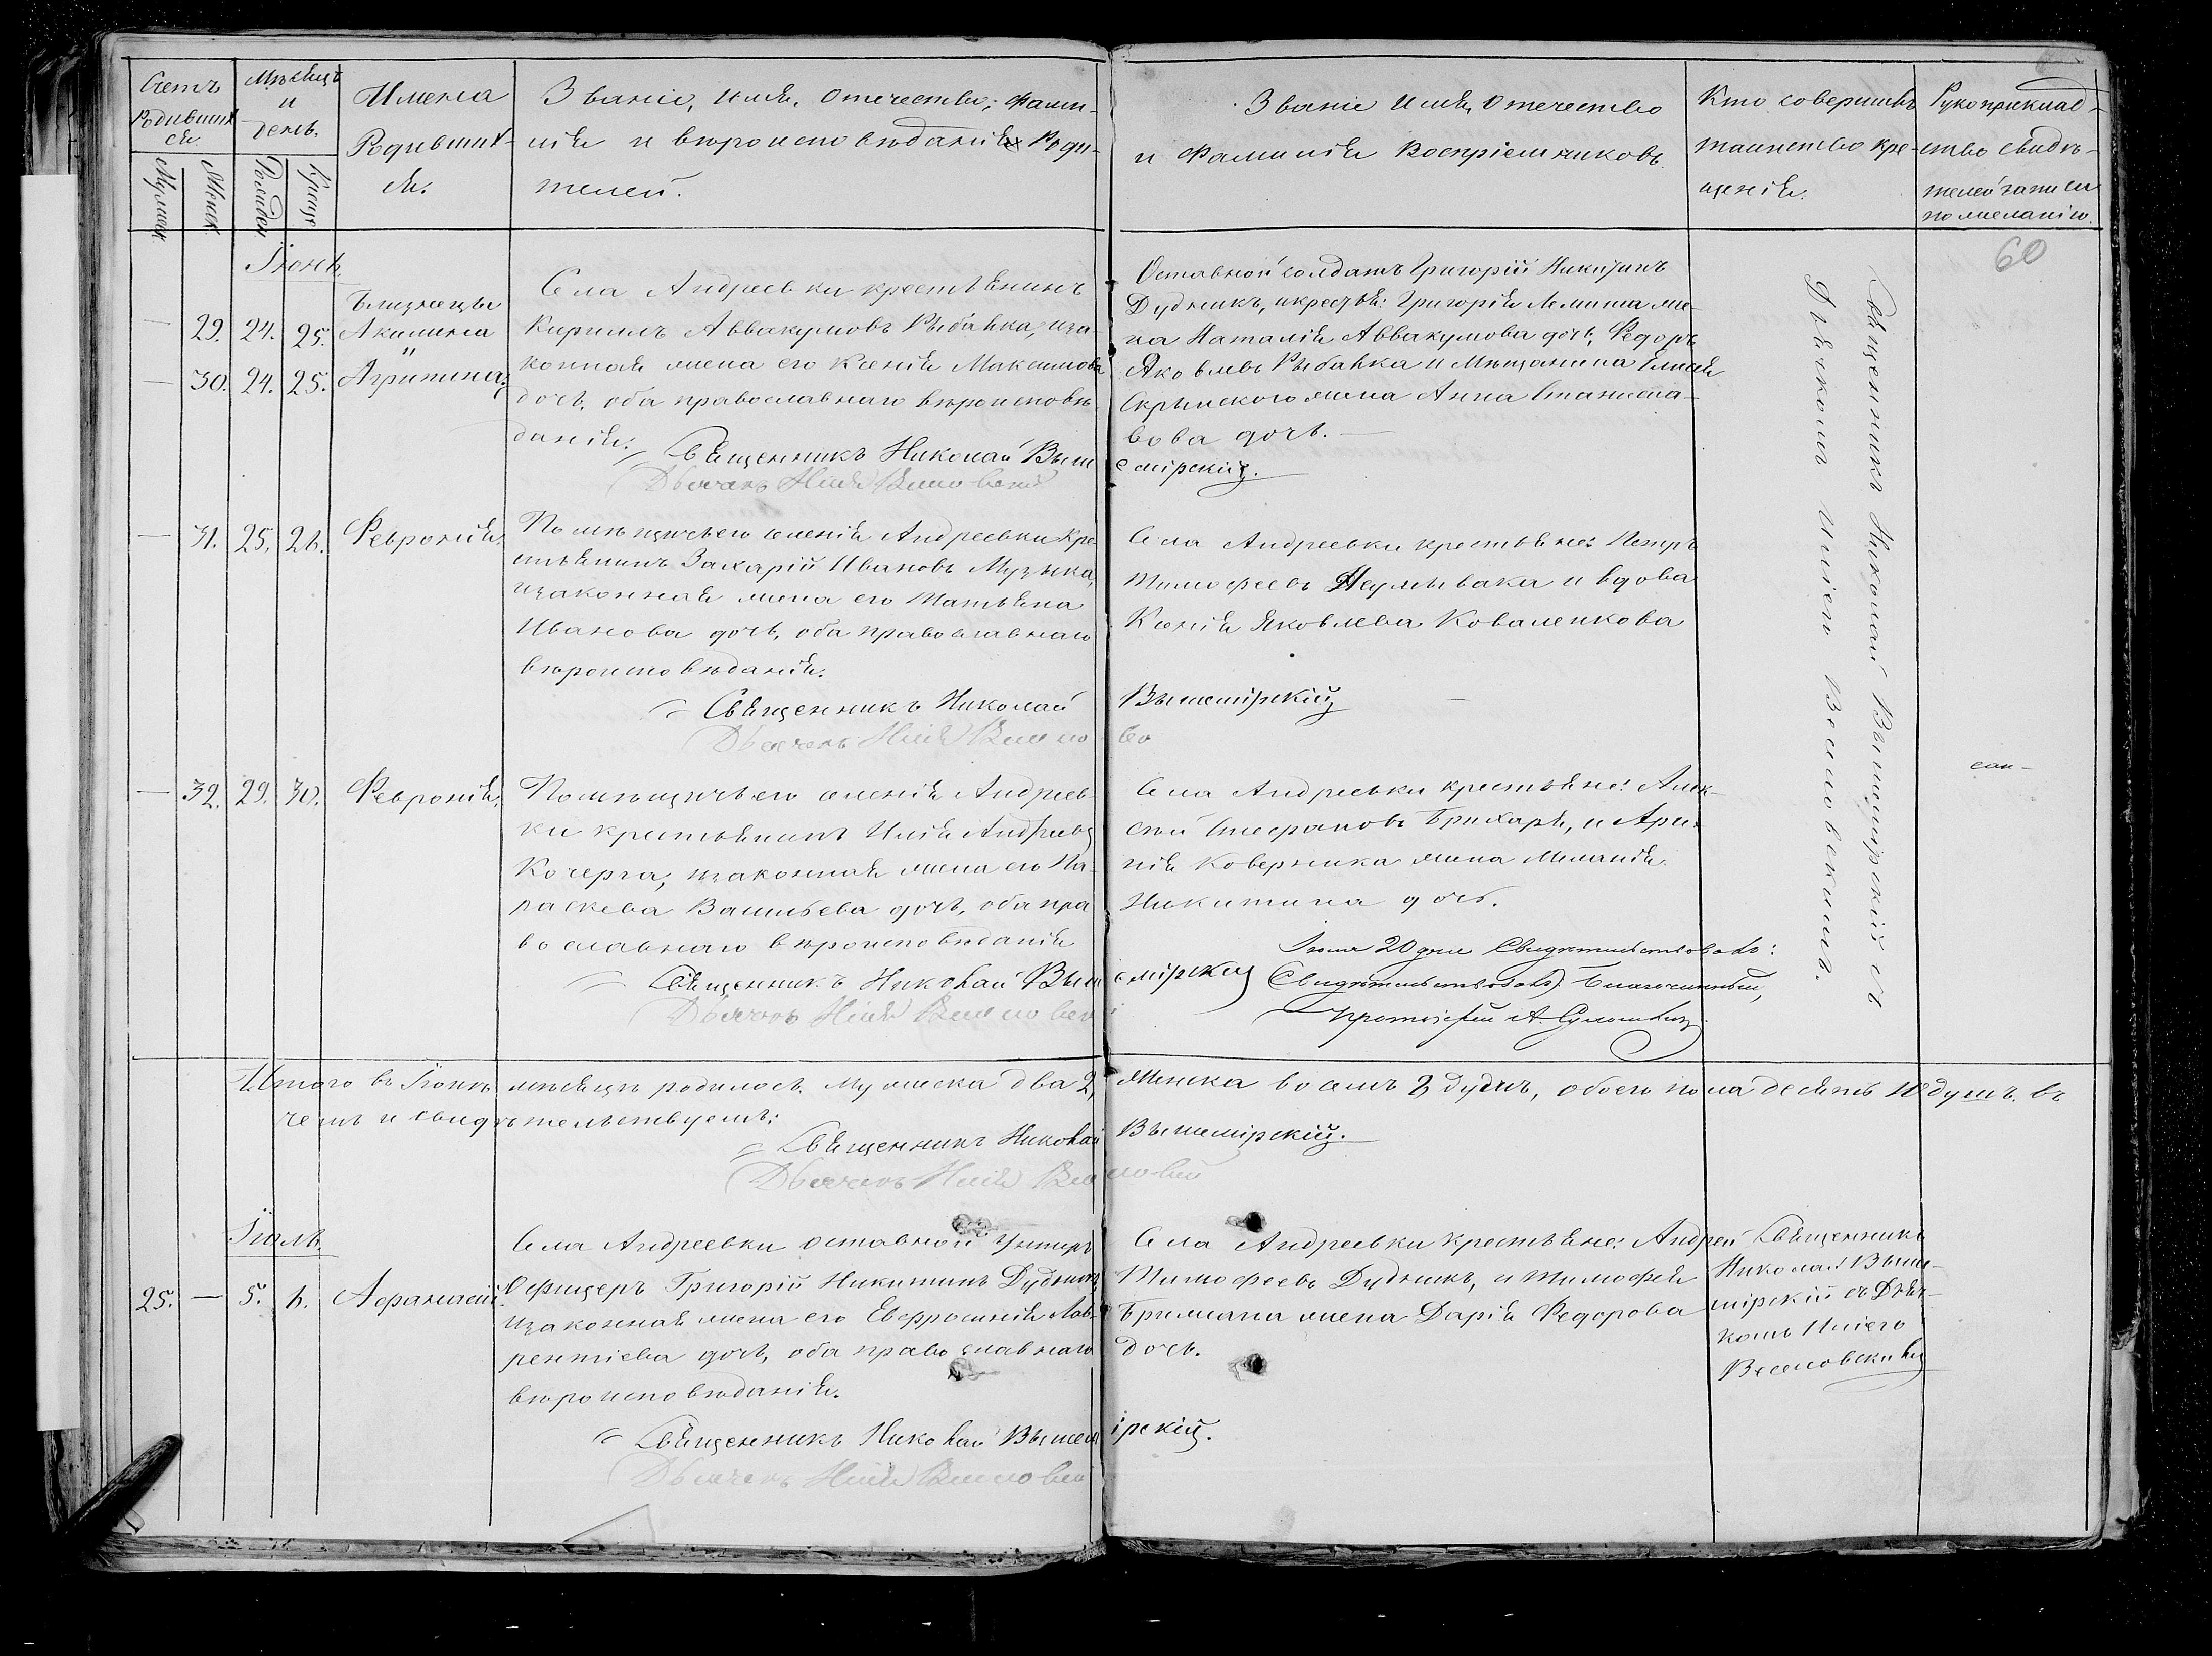 Счетъ Родивших ся
Мужеск
Женск
Мѣсяцъ и день.
Рожден
Крещ
Имена Родивших- ся.
Званіе, имя, отечество, фами-
лія и вѣроисповѣданія Роди-
телей.
Званіе имя, отечество
и фамилія воспріемниковъ.
Кто совершилъ
таинство кре-
щенія.
Рукоприклад-
ство свидѣ-
телей записи
по желанію.
60
Іюнь
Близнецы
— 29. 24. 25. Акилина
"
— 30. 24. 25. Агрипина,
Села Андреевки крестьянинъ
Кирилъ Аввакумовъ Рыбалка, иза-
конная жена его Ксенія Максимова
дочь, оба православнаго вѣроисповѣ-
данія.
Священникъ Николай Выш
Дьячокъ Илія Веселовскій
Оставной солдатъ Григорій Никитинъ
Дудникъ, икрестьян: Григорія Лемиша же-
на Наталія Аввакумова дочь, Федоръ
Яковлевъ Рыбалка и Мѣщанина
жена Анна Станисла-
вова дочь. —
емірскій.
— 31. 25. 26. Февронія.
Помѣщичьего селенія Андреевки кре-
стьянинъ Захарій Ивановъ Музыка,
изаконная жена его Татьяна
Иванова дочь, оба православнаго
вѣроисповѣданія.
Священникъ Николай
Дьячокъ Илія Весело
Села Андреевки крестьяне: Петръ
Тимофеевъ и вдова
Ксенія Яковлева Коваленкова
Вышемірскій
во
— 32. 29. 30. Февронія.
Помѣщичьего селенія Андреев-
ки крестьянинъ Илія Андреевъ
Кочерга, изаконная жена его Па-
раскева Васильева дочь, оба пра
вославнаго вѣроисповѣданія
Священникъ Николай Выш
Дьячокъ Илія Веселовск
Села Андреевки крестьяне: Алек-
сѣй Стефановъ Брихарь, и Ари-
нія жена Меланія
Никитина дочь.
емірскій
Іюля 20 дня Свидѣтельствовалъ:
Свидѣтельствовалъ Благочинный,
протоіерей А.
Священникъ Николай Вышемірскій съ
Дьячкомъ Иліею Веселовскимъ.
Итого въ Іюнѣ мѣсяцѣ родилось Мужеска два 2, Женска восемь 8 душъ, обоего пола десять 10 душъ. въ
чемъ и свидѣтельствуемъ:
Священникъ Николай Вышемірскій.
Дьячокъ Илія Веселовскій
Іюль
25. — 5. 6. Афанасій.
Села Андреевки оставной Унтеръ
Офицеръ Григорій Никитинъ Дудникъ,
изаконная жена его Евфросинія Лав-
рентіева дочь, оба православнаго
вѣроисповѣданія.
Священникъ Николай Вышем
Дьячокъ Илія Веселовск
Села Андреевки крестьяне: Андрей
Тимофеевъ Дудникъ, и Тимофея
жена Дарія Федорова
дочь.
ірскій.
Священникъ
Николай Выше-
мірскій съ Дьяч-
комъ Иліею
Веселовскимъ